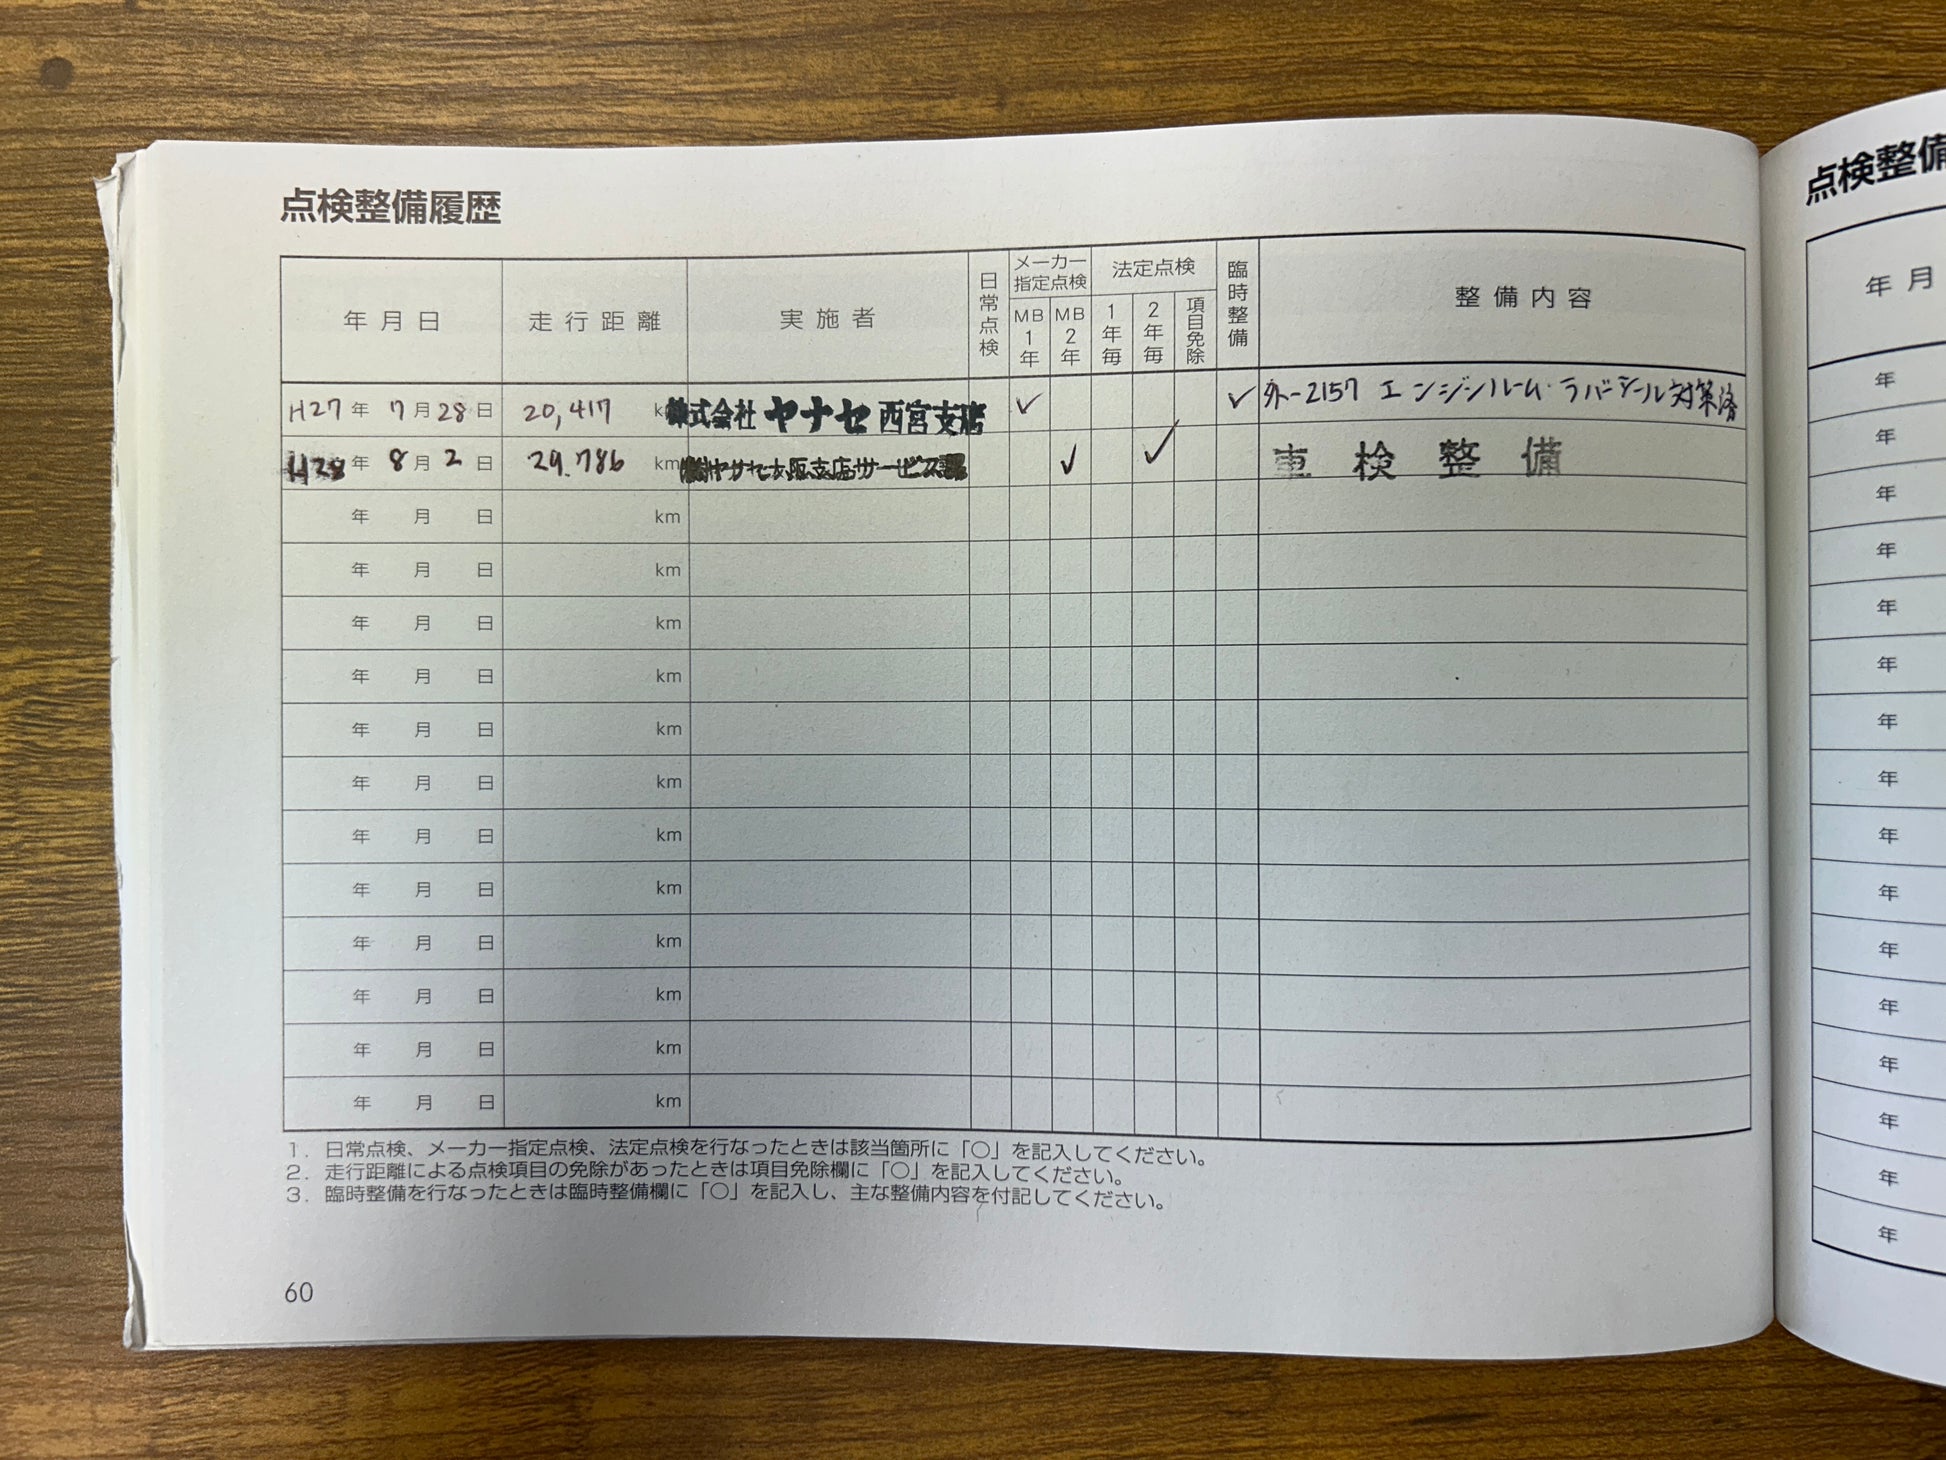 点検整備履歴
年月日 走行距離 実施者 日常点検 メーカー指定点検 MB1年 MB2年 法定点検 1年毎 2年毎 項目免除 臨時整備 整備内容
H27年 7月28日 20,417 km 株式会社 ヤナセ 西宮支店 ✓ ✓ 外-2157 エンジンルーム・ラバーシール対策済
H28年 8月2日 29,786 km ㈱ヤナセ大阪支店サービス課 ✓ ✓ 車検整備
年 月 日 km
年 月 日 km
年 月 日 km
年 月 日 km
年 月 日 km
年 月 日 km
年 月 日 km
年 月 日 km
年 月 日 km
年 月 日 km
年 月 日 km
年 月 日 km
1. 日常点検、メーカー指定点検、法定点検を行なったときは該当箇所に「○」を記入してください。
2. 走行距離による点検項目の免除があったときは項目免除欄に「○」を記入してください。
3. 臨時整備を行なったときは臨時整備欄に「○」を記入し、主な整備内容を付記してください。
60
点検整備
年月
年
年
年
年
年
年
年
年
年
年
年
年
年
年
年
年